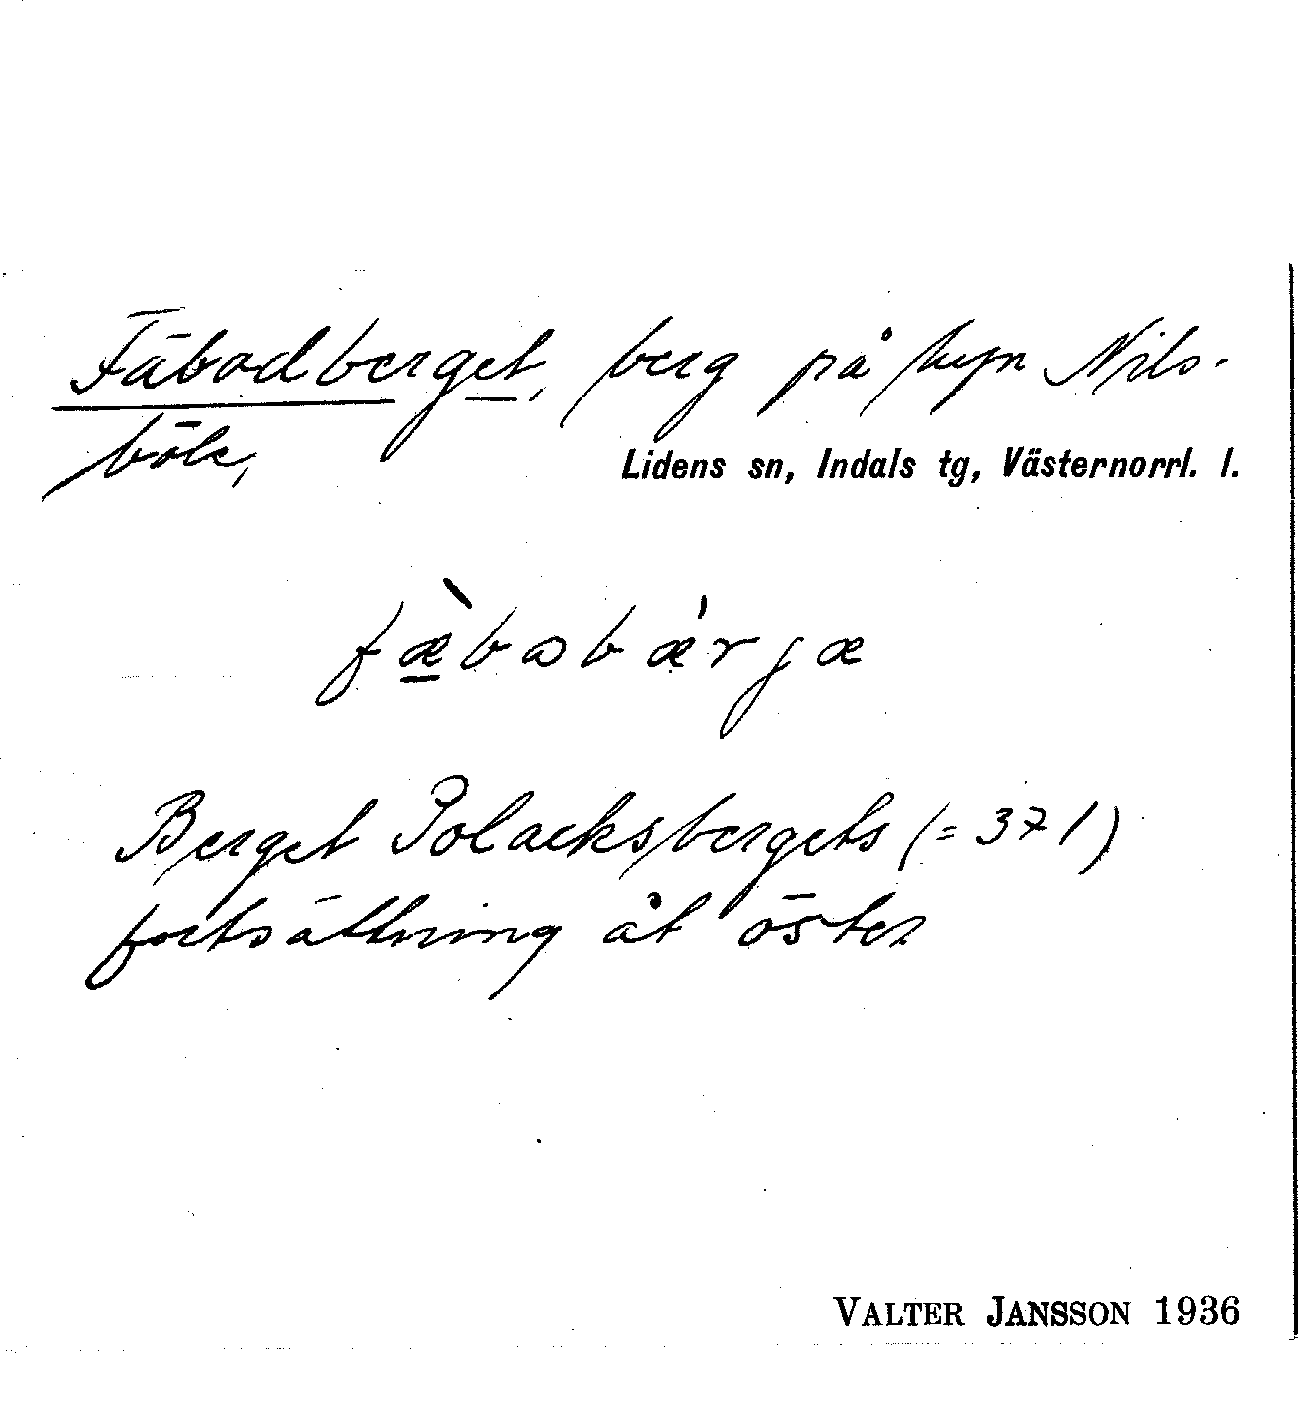 Fäbodberget, berg på hyn Nils-
böle,
Lidens sn, Indals tg, Västernorrl. l.
fæ̀bɷbǽrjæ
Berget Polacksbergets (= 371)
fortsättning åt öster
VALTER JANSSON 1936